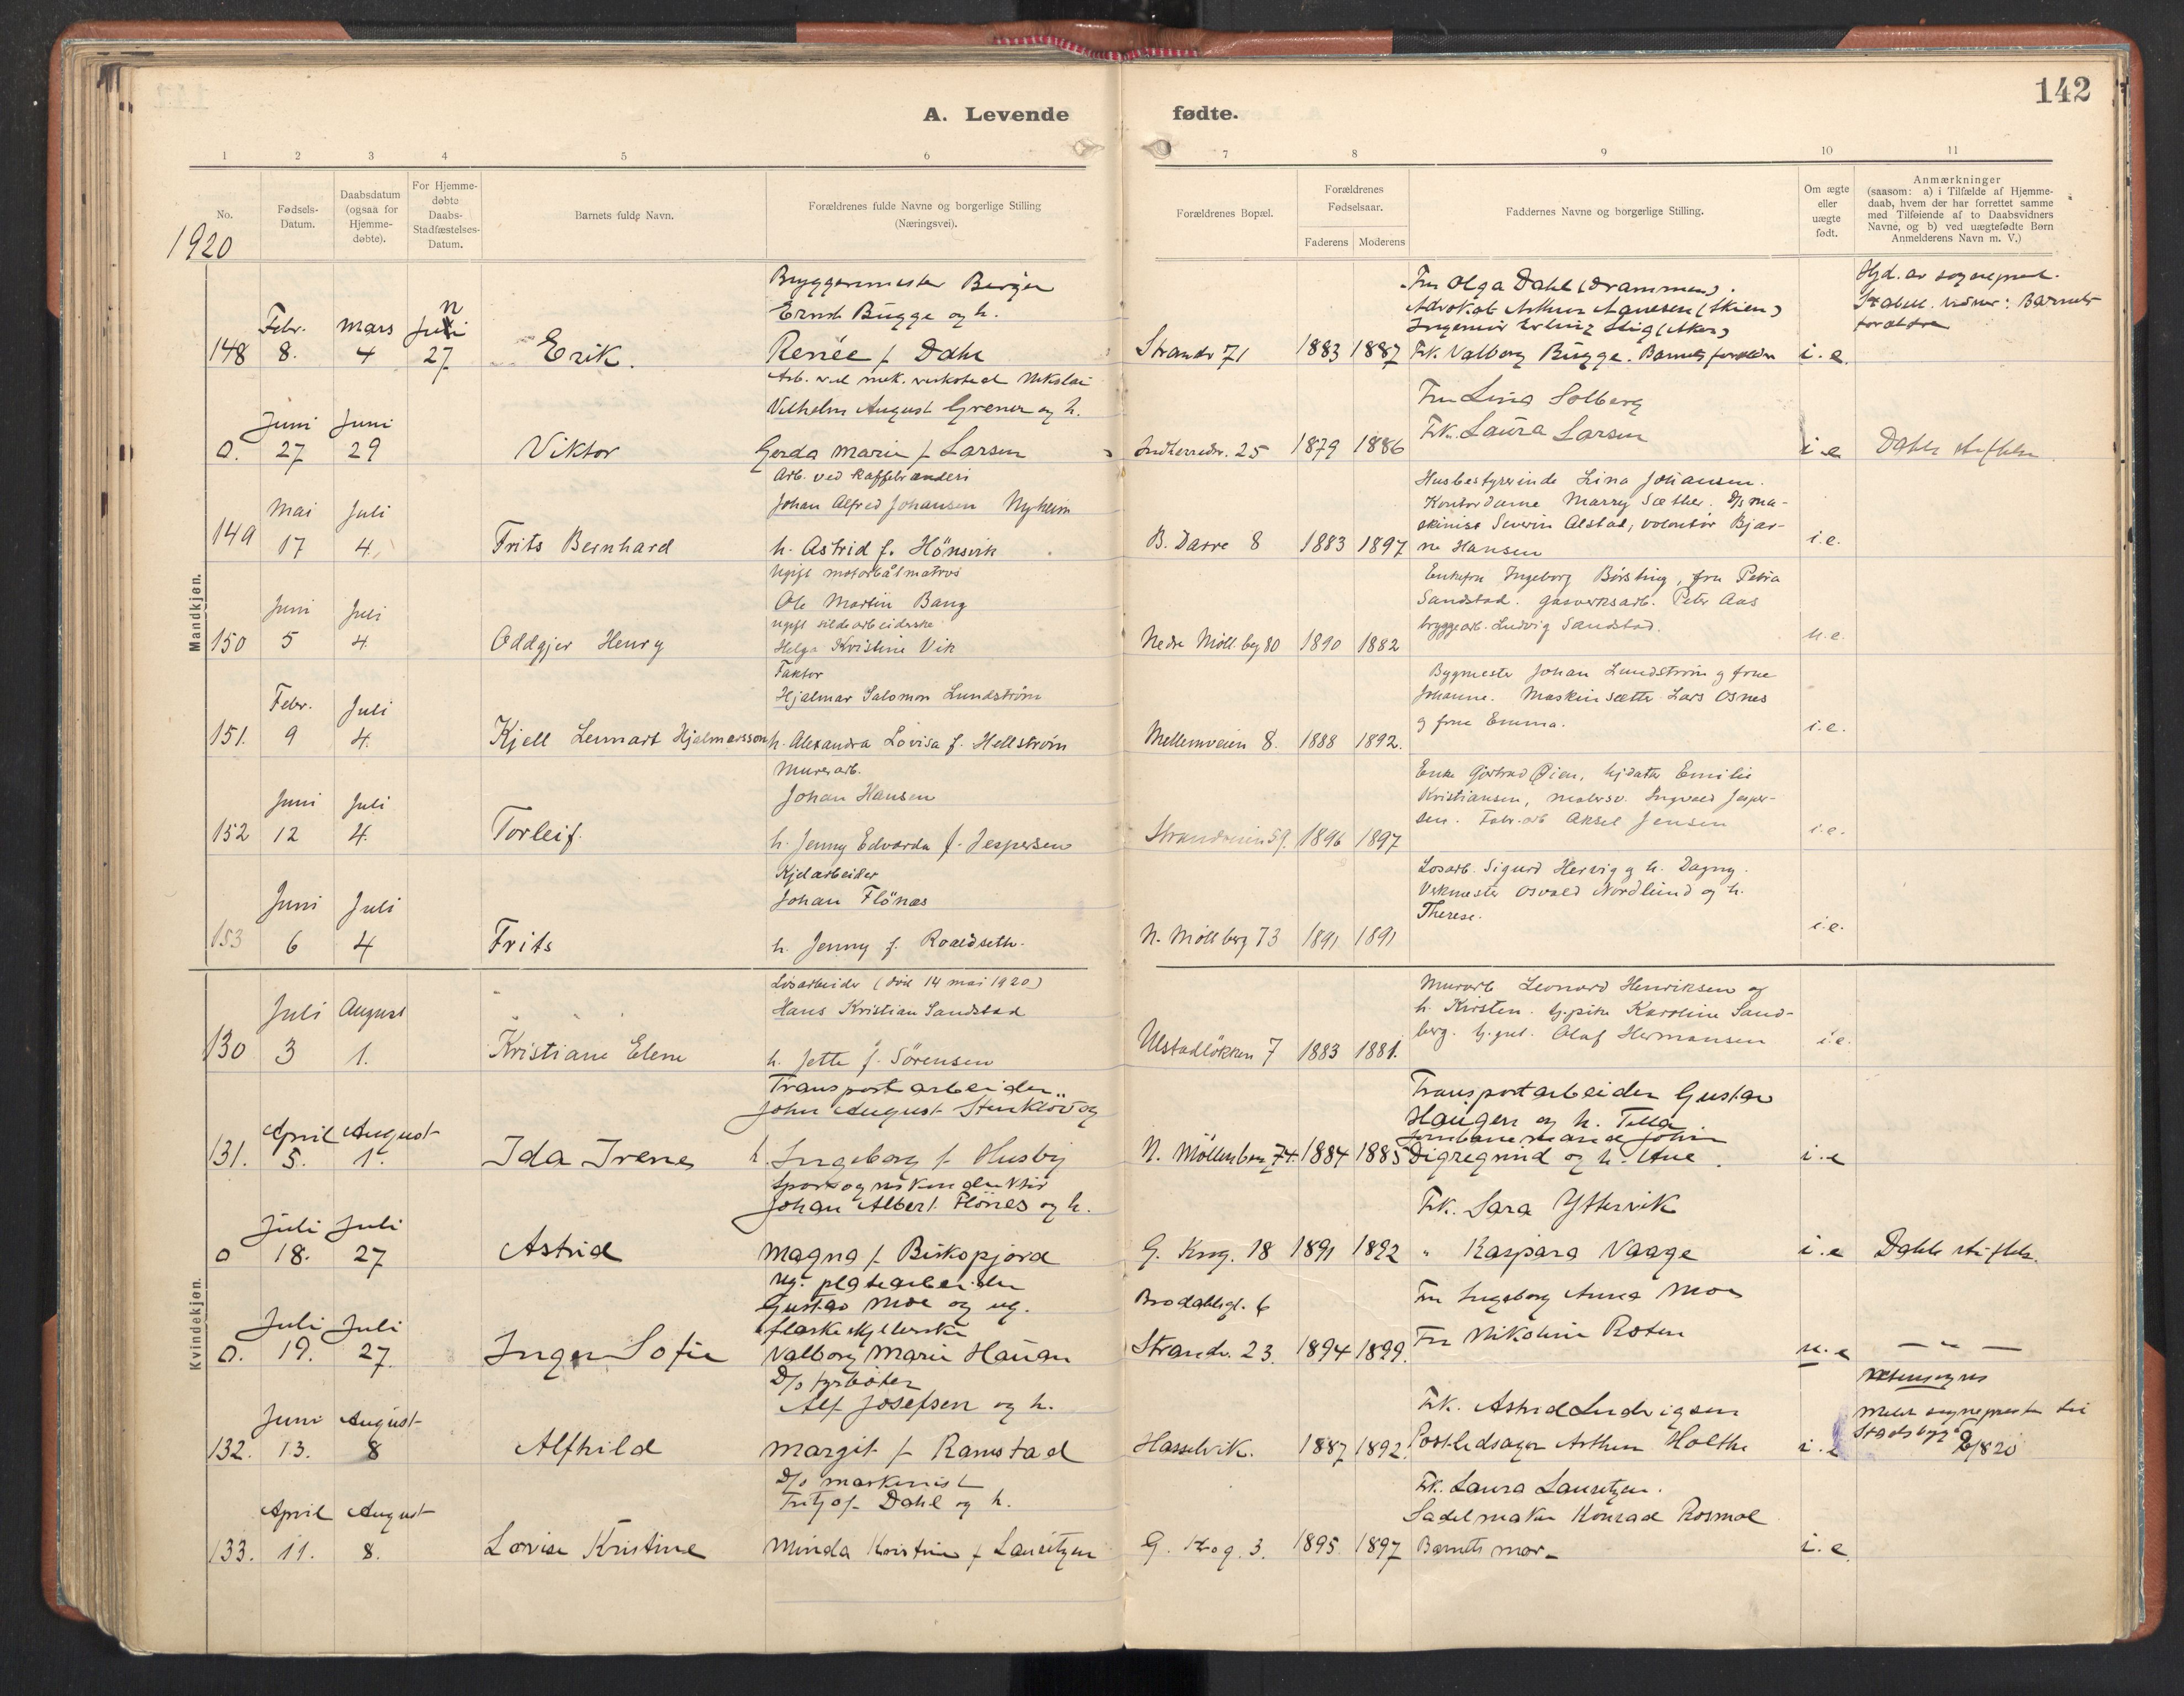 142
A. Levende fødte.
1 2 3 4 5 6 7 8 9 10 11
No.
Fødsels-
Datum.
Daabsdatum
(ogsaa for
Hjemme-
døbte).
For Hjemme-
døbte
Daabs-
Stadfæstelses-
Datum.
Barnets fulde Navn.
Forældrenes fulde Navne og borgerlige Stilling
(Næringsvei).
Forældrenes Bopæl.
Forældrenes
Fødselsaar.
Faderens Moderens
Faddernes Navne og borgerlige Stilling.
Om ægte
eller
uægte
født.
Anmærkninger
(saasom: a) i Tilfælde af Hjemme-
daab, hvem der har forrettet samme
med Tilføiende af to Daabsvidners
Navne, og b) ved uægtefødte Børn
Anmelderens Navn m. V.)
1920
Mandkjøn.
148 Febr. 8. Mars 4 Juni 27
Erik.
Bryggermester Birger
Ernst Bugge og h.
Renée f. Dahl
Strandv 71 1883 1887
Fru Olga Dahl (Drammen).
Advokat Arthur (Skien)
Ingeniør Erling (Aker)
Frk. Valborg Bugge. Barnets forældre
i. e.
Hjd. av sogneprest
Stabell. Vidner: Barnets
forældre
O. Juni 27 Juni 29
Viktor
Arb. ved mek. verksted Nikolai
Vilhelm August Grener og h.
Gerda Marie f. Larsen
Indherredsv. 25 1879 1886
Fru Lina Solberg
Frk. Laura Larsen
i. e
Dahls stiftelse
149 Mai 17 Juli 4.
Frits Bernhard
Arb. ved kaffebrænderi
Johan Alfred Johansen Nyheim
h. Astrid f. Hönsvik
B. Dasre 8 1883 1897
Husbestyrerinde Lina Johansen.
Kontordame Marry Sæther. D/s ma-
skinist Severin Alstad, volontør Bjar-
ne Hansen
i. e.
150 Juni 5 Juli 4.
Oddgjer Henry
Ugift motorbåtmatros
Ole Martin Bang
ugift sildearbeiderske
Helga Kristine Vik
Nedre Möll.bg 80 1890 1882
Enkefru Ingeborg Börsting, fru Petra
Sandstad. gasverksarb. Peter Aas
bryggearb. Ludvig Sandstad.
u. e.
151. Febr. 9 Juli 4.
Kjell Lennart Hjalmarsson
Faktor
Hjalmar Salomon Lundström
h. Alexandra Lovisa f. Hellström
Mellemveien 8. 1888 1892.
Bygmester Johan Lundström og frue
Johanne. Maskinsætter Lars Osnes
og frue Emma.
i. e.
152 Juni 12 Juli 4.
Torleif.
Murerarb.
Johan Hansen
h. Jenny Edvarda f. Jespersen
Strandveien 59. 1896 1897
Enke Gjertrud Öien, hj.datter Emilie
Kristiansen, malersv. Ingvald Jesper-
sen. Fabr.arb Aksel Jensen
i. e.
153 Juni 6 Juli 4
Frits
Kjelarbeider
Johan Flönæs
h. Jenny f. Roaldseth.
N. Möllberg 73 1891 1891
Losarb. Sigurd Hervig og h. Dagny.
Verkmester Osvald Nordlund og h.
Therese.
i. e.
Kvindekjøn.
130 Juli 3 August 1.
Kristiane Elene
Losarbeider (död 14 mai 1920)
Hans Kristian Sandstad
h. Jette f. Sörensen
Ulstadlökken 7 1883 1881.
Murarb Leonard Henriksen og
h. Kirsten. hj.pike Karoline Sand-
berg. Olaf Hermansen
i. e.
131. April 5. August 1.
Ida Irene
Transportarbeider
John August Stenklöv og
h. Ingeborg f. Husby
N. Möllenberg 74. 1884 1885
Transportarbeider Gustav
Haugen og h. Tella
Jernbanemand John
Digregrind og h. Ane.
i. e
O Juli 18. Juli 27
Astrid
Sporvognskonduktör
Johan Albert Flönes og h.
Magna f. Biskopjord
G. Krog. 18 1891 1892
Frk. Sara Yttervik
" Kaspara Vaage
i. e
Dahls stiftels.
O. Juli 19. Juli 27
Inger Sofie
Ug. platearbeider
Gustav Moe og ug.
flaskeskyllerske
Valborg Marie Hauan
Brodahlsgt. 6
Strandv. 23. 1894 1899.
Fru Ingeborg Anna Moe
Fru Nikoline Roten
u. e
— " —
132. Juni 13. August 8
Alfhild
D/s fyrböter
Alf Josefsen og h.
Margit f. Ramstad
Hasselvik. 1887 1892.
Frk. Astrid Ludvigsen
Postledsager Arthur Holthe
i. e
Utensogns
Meldt sognepresten til
Stadsbygd 9/8 20
133. April 11. August 8.
Lovise Kristine
D/s maskinist
Fritjof Dahl og h.
Minda Kristine f Lauritzen
G. Krog. 3. 1895. 1897
Frk. Laura Lauritzen.
Sadelmaker Konrad Rosmol
Barnets mor.
i. e.